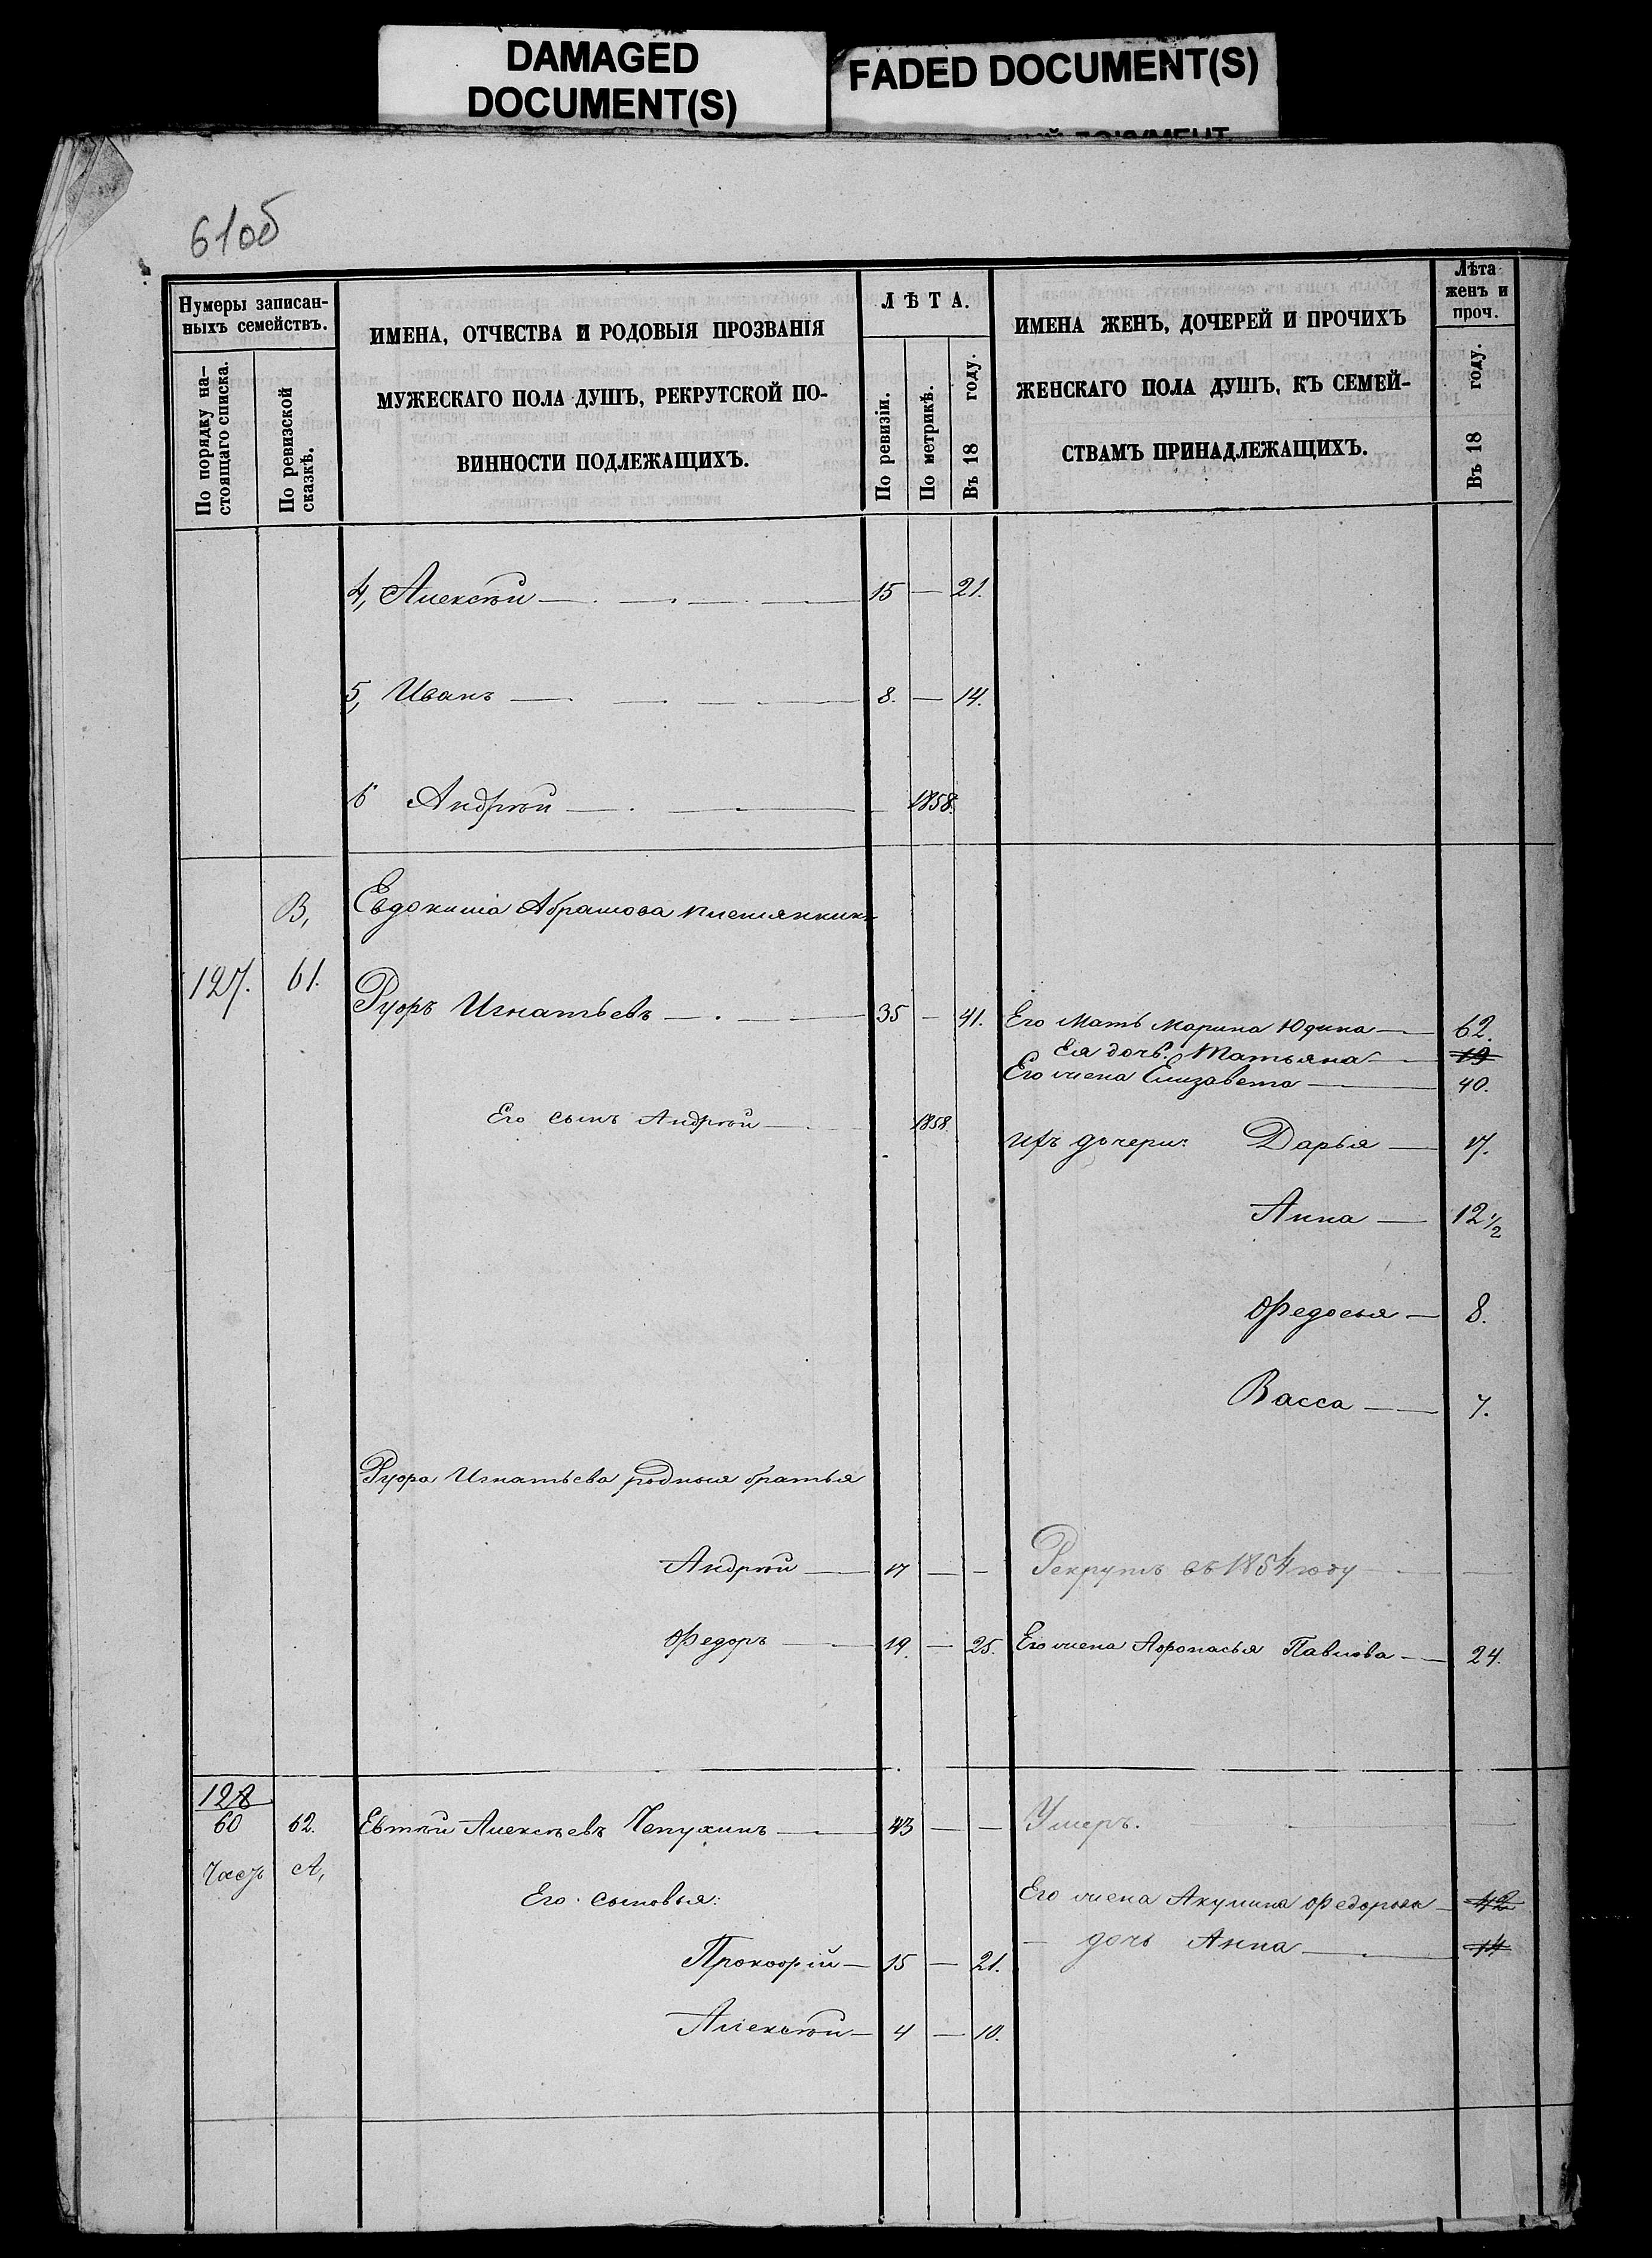 DAMAGED
DOCUMENT(S)
FADED DOCUMENT(S)
61об
Нумеры записан-
ныхъ семействъ.
По порядку на-
стоящаго списка.
По ревизской
сказкѣ.
ИМЕНА, ОТЧЕСТВА И РОДОВЫЯ ПРОЗВАНІЯ
МУЖЕСКАГО ПОЛА ДУШЪ, РЕКРУТСКОЙ ПО-
ВИННОСТИ ПОДЛЕЖАЩИХЪ.
ЛѢТА.
По ревизіи.
По метрикѣ.
Въ 18 году.
ИМЕНА ЖЕНЪ, ДОЧЕРЕЙ И ПРОЧИХЪ
ЖЕНСКАГО ПОЛА ДУШЪ, КЪ СЕМЕЙ-
СТВАМЪ ПРИНАДЛЕЖАЩИХЪ.
Лѣта
женъ и
проч.
Въ 18 году.
4, Алексѣй — 15 — 21.
5, Иванъ — 8. — 14.
6 Андрѣй — 1858.
В, Евдокима Абрамова племянникъ
127. 61. Руфъ Игнатьевъ — 35 — 41. Его мать Марина Юдина — 62.
Ея дочь: Татьяна — 19
Его жена Елизавета — 40.
Его сынъ Андрѣй — 1858.
Ихъ дочери: Дарья — 17.
Анна — 12 1/2
Федосья — 8.
Васса — 7.
Руфа Игнатьева родныя братья
Андрѣй — 17 — — Рекрутъ въ 1854 году —
Федоръ — 19. — 25. Его жена Афонасья Павлова — 24.
128
60 62. Евтѣй Алексѣевъ Чепухинъ — 43 — — Умеръ.
А,
Его сыновья: Его жена Акулина Федорова — 42
Прокофій — 15 — 21. — дочь Анна — 14
Алексѣй — 4 — 10.